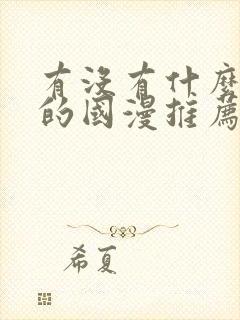 有沒有什麼
的國漫推薦
希夏